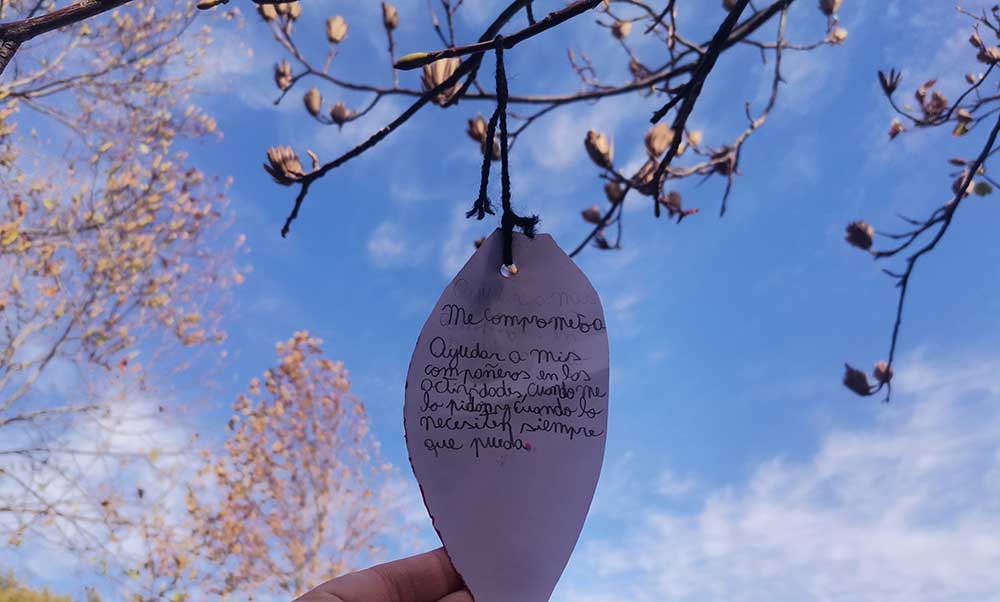 Me comprometo a
Ayudar a mis
compañeros en las
actividades, cuando me
lo pidan y cuando lo
necesiten siempre
que pueda.